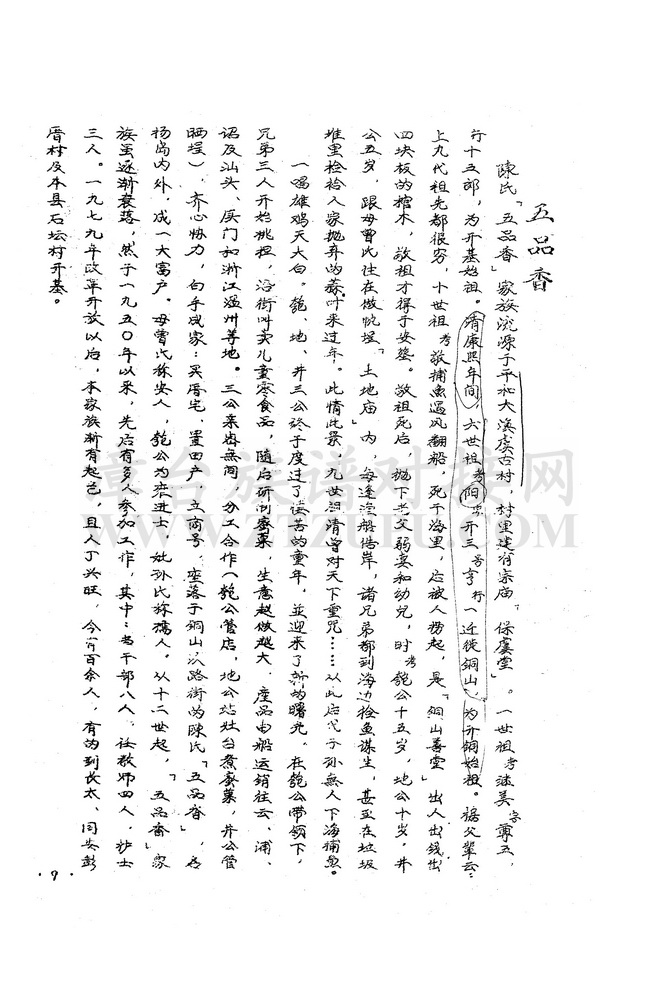 五品香
陳氏「五品香」家族流源于平和大溪虞古村，村里建有宗庙「保虞堂」。一世祖考 美字尊五，
行十五郎，为开基始祖。清康熙年间，六世祖考阳字开三号亨行一迁徙铜山，为开铜始祖。据父辈云：
上九代祖先都很穷，十世祖考敬捕魚遇风翻船，死于海里，后被人捞起，是「铜山善堂」出人出钱出
四块板的棺木，敬祖才得于安葬。敬祖死后，抛下老父弱妻和幼兒，时考 公十五岁，地公十岁，井
公五岁，跟母曾氏住在 「土地庙」内，每逢渔船 岸，諸兄弟都到海边捡鱼谋生，甚至在垃圾
堆里捡拾人家抛弃的 叶来过年。此情此景，九世祖清曾对天下重咒……从此后代子孙無人下海捕魚。
一唱雄鸡天大白。 、地、井三公终于度过了 苦的童年，並迎来了新的曙光，在 公带领下，
兄弟三人开始挑担，沿街叫卖儿童零食品，随后研制蜜菓，生意越做越大，産品由船运銷往云、浦、
诏及汕头、厦门和浙江温州等地。三公亲 無间，分工合作（ 公管店，地公站灶台煮蜜菓，井公管
晒埕），齐心协力，白手成家：买厝宅、置田产，立商号，座落于铜山 路街的陳氏「五品香」，名
扬岛内外，成一大富户。母曾氏称安人， 公为 进士，妣孙氏称孺人。从十二世起，「五品香」家
族虽逐渐衰落，然于一九五〇年以来，先后有多人参加工作，其中：当干部八人，任教师四人，护士
三人。一九七九年改革开放以后，本家族渐有起色，且人丁兴旺，今有百余人，有的到长太、同安彭
厝村及本县石坛村开基。
·9·
漳台族谱对接网
WWW.ZTZUPU.COM